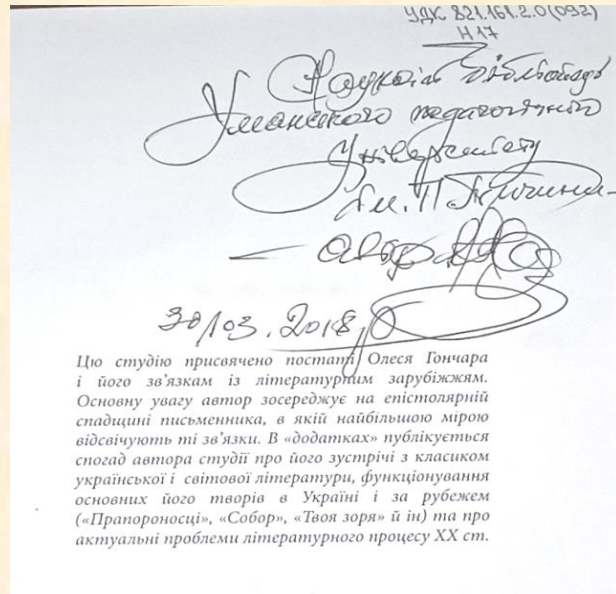 УДК 821.161.2.0(092)
Н17
Науковій бібліотеці
Уманського педагогічного
Університету
ім. П. Тичини –
– автор
30/03. 2018 р
Цю студію присвячено постаті Олеся Гончара
і його зв’язкам із літературним зарубіжжям.
Основну увагу автор зосереджує на епістолярній
спадщині письменника, в якій найбільшою мірою
відсвічують ті зв’язки. В «додатках» публікується
спогад автора студії про його зустрічі з класиком
української і світової літератури, функціонування
основних його творів в Україні і за рубежем
(«Прапороносці», «Собор», «Твоя зоря» й ін) та про
актуальні проблеми літературного процесу ХХ ст.